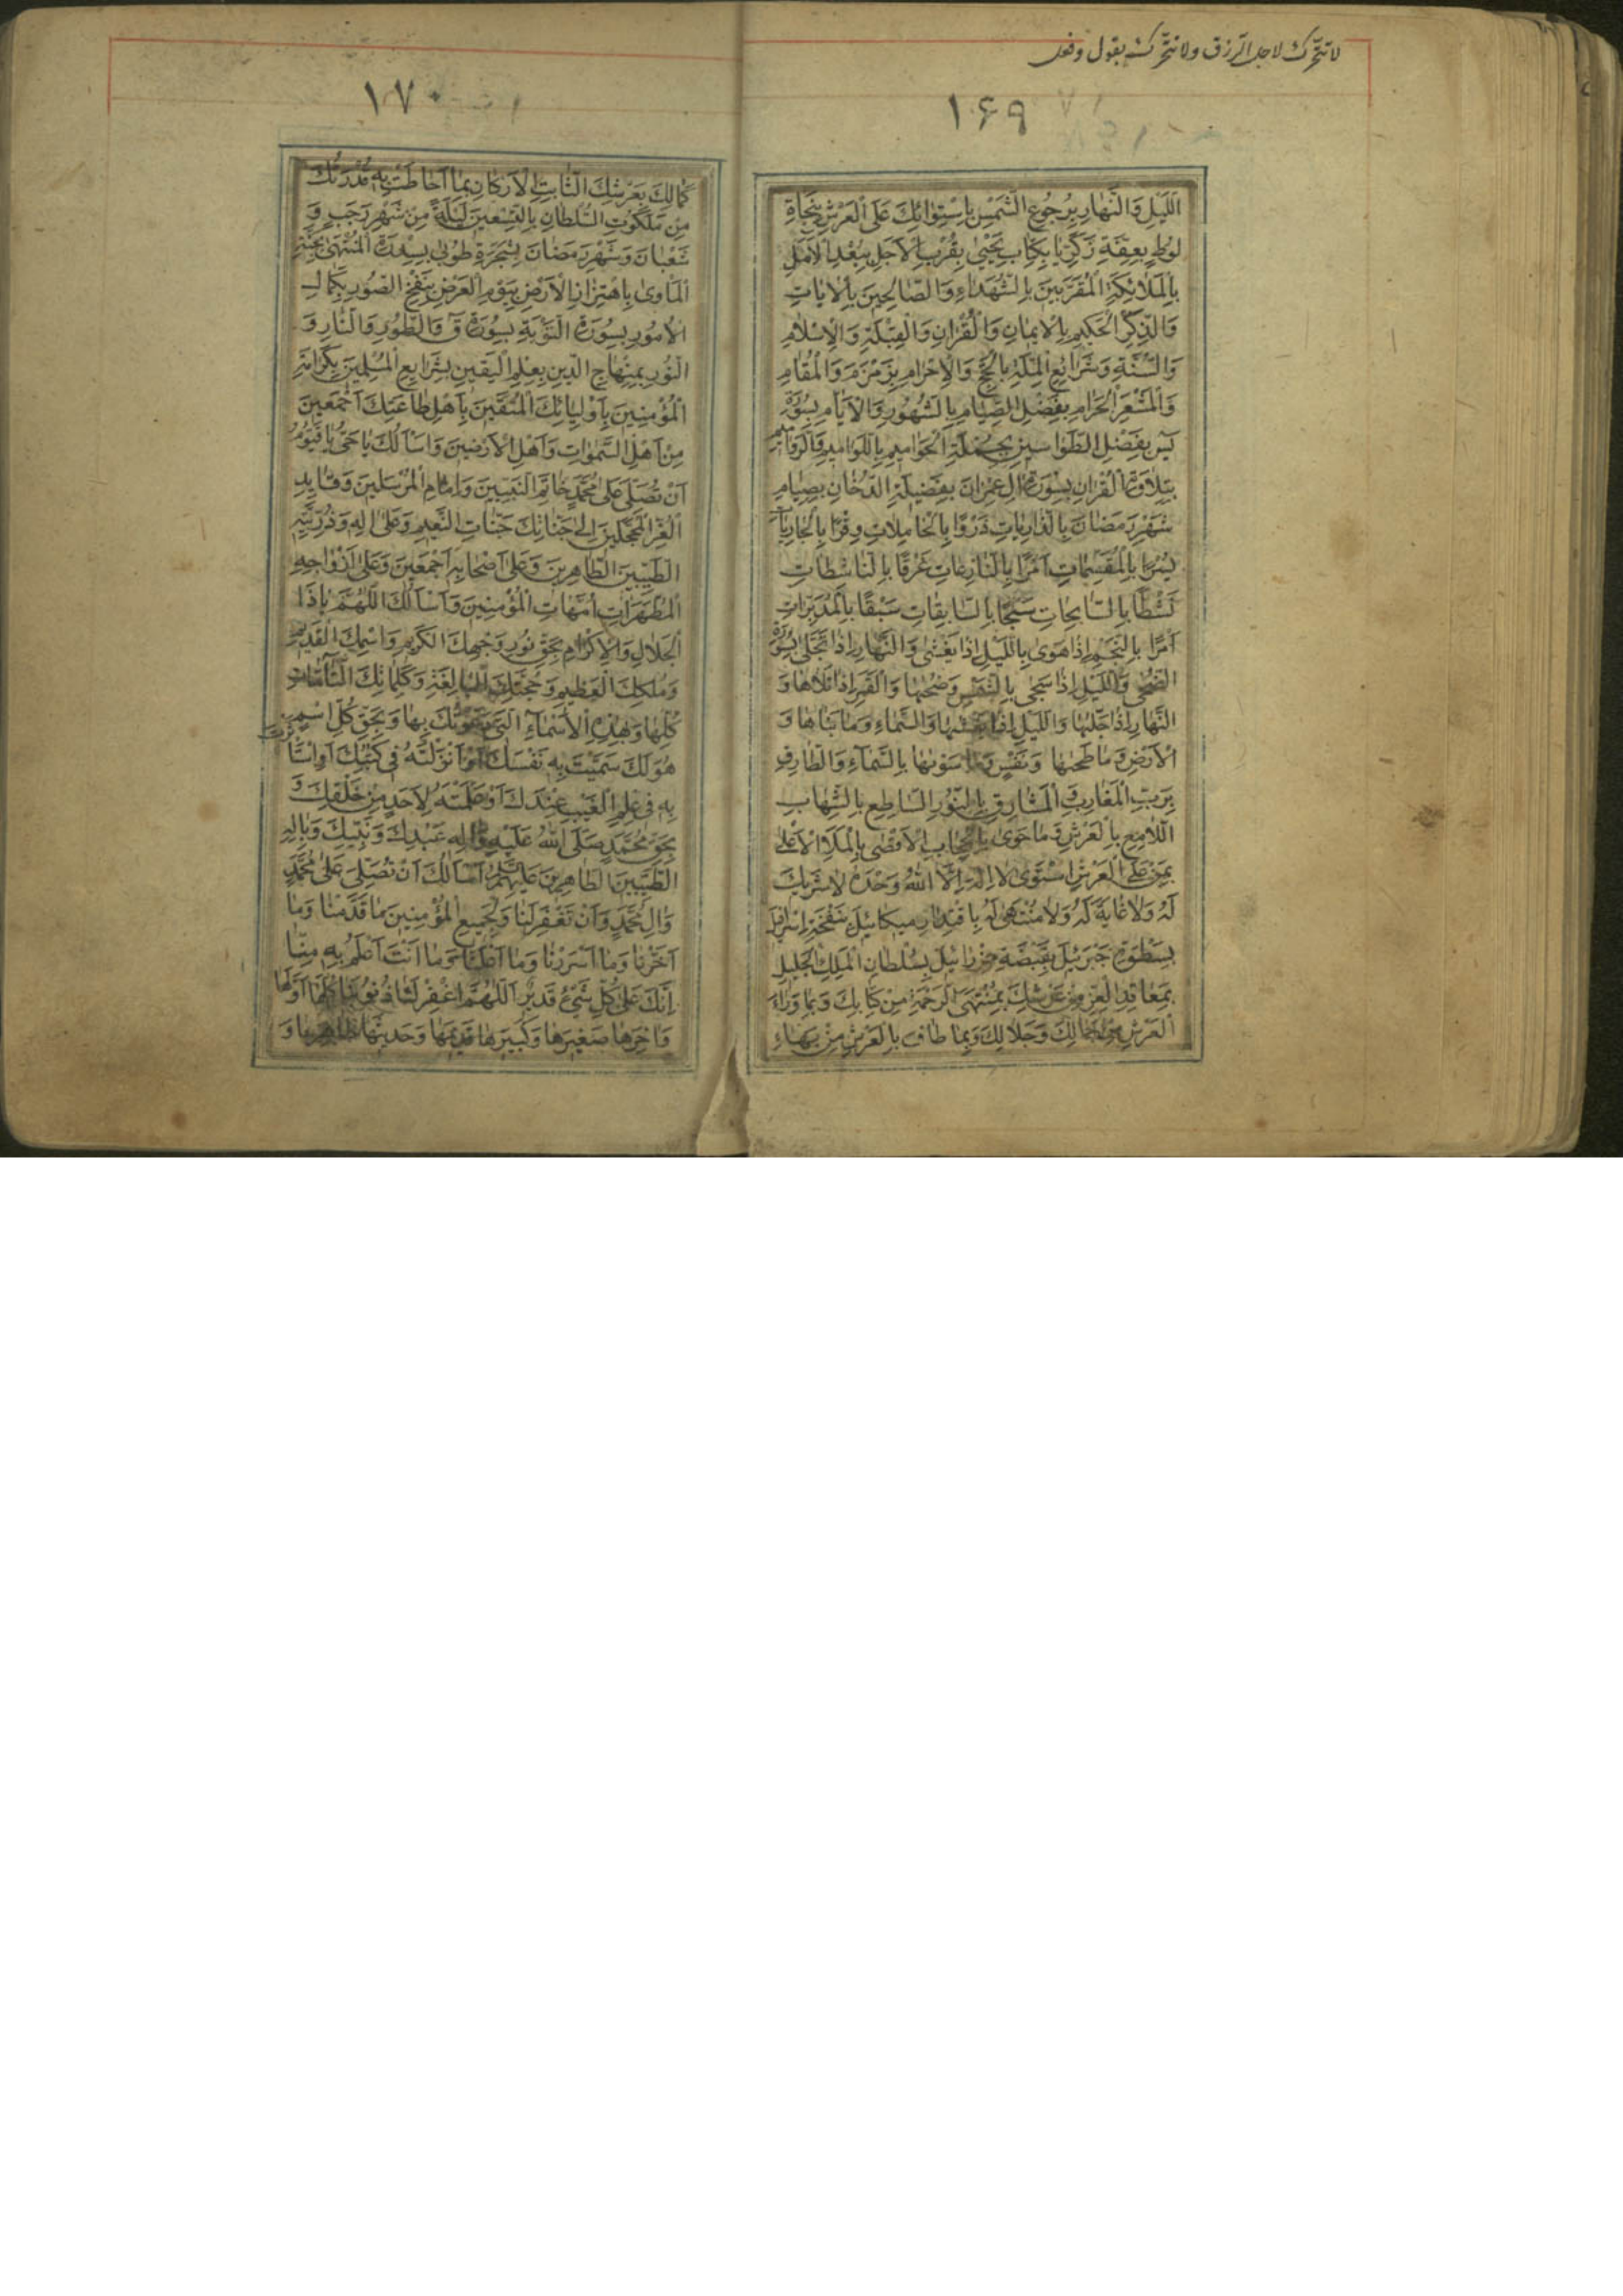 لا تتحرك لاجل الرزق ولا تتحرك بقول وفعل
۱۶۹
اَللَّيْلِ وَالنَّهَارِ بِرُجُوعِ الشَّمْسِ بِاِسْتِوَائِكَ عَلَى الْعَرْشِ بِنَجَاةِ
لُوطٍ بِعِفَّةِ زَكَرِيَّا بِكِتَابِ يَحْيٰى بِقُرْبِ الْاَجَلِ بِبُعْدِ الْاَمَلِ
بِالْمَلَائِكَةِ الْمُقَرَّبِينَ بِالشُّهَدَاءِ وَالصَّالِحِينَ بِالْاٰيَاتِ
وَالذِّكْرِ الْحَكِيمِ بِالْاِيمَانِ وَالْقُرْاٰنِ وَالْقِبْلَةِ وَالْاِسْلَامِ
وَالسُّنَّةِ وَشَرَائِعِ الْمِلَّةِ بِالْحَجِّ وَالْاِحْرَامِ بِزَمْزَمَ وَالْمَقَامِ
وَالْمَشْعَرِ الْحَرَامِ بِفَضْلِ الصِّيَامِ بِالشُّهُورِ وَالْاَيَّامِ بِسُورَةِ
يٰسٓ بِفَضْلِ الطَّوَاسِينِ بِجُمْلَةِ الْحَوَامِيمِ بِاللَّوَامِيمِ
بِتِلَاوَةِ الْقُرْاٰنِ بِسُورَةِ اٰلِ عِمْرَانَ بِفَضِيلَةِ الدُّخَانِ بِصِيَامِ
شَهْرِ رَمَضَانَ بِالذَّارِيَاتِ ذَرْوًا بِالْحَامِلَاتِ وِقْرًا بِالْجَارِيَاتِ
يُسْرًا بِالْمُقَسِّمَاتِ اَمْرًا بِالنَّازِعَاتِ غَرْقًا بِالنَّاشِطَاتِ
نَشْطًا بِالسَّابِحَاتِ سَبْحًا بِالسَّابِقَاتِ سَبْقًا بِالْمُدَبِّرَاتِ
اَمْرًا بِالنَّجْمِ اِذَا هَوٰى بِاللَّيْلِ اِذَا يَغْشٰى وَالنَّهَارِ اِذَا تَجَلّٰى بِسُورَةِ
الضُّحٰى وَاللَّيْلِ اِذَا سَجٰى بِالشَّمْسِ وَضُحٰيهَا وَالْقَمَرِ اِذَا تَلَاهَا وَ
النَّهَارِ اِذَا جَلّٰيهَا وَاللَّيْلِ اِذَا يَغْشٰيهَا وَالسَّمَاءِ وَمَا بَنَاهَا وَ
الْاَرْضِ وَمَا طَحٰيهَا وَنَفْسٍ وَمَا سَوّٰيهَا بِالسَّمَاءِ وَالطَّارِقِ
بِرَبِّ الْمَغَارِبِ وَالْمَشَارِقِ بِالنُّورِ السَّاطِعِ بِالشِّهَابِ
اللَّامِعِ بِالْعَرْشِ وَمَا حَوٰى بِالْحِجَابِ الْاَقْصٰى بِالْمَلَاِ الْاَعْلٰى
بِمَنْ عَلَى الْعَرْشِ اسْتَوٰى لَا اِلٰهَ اِلَّا اللّٰهُ وَحْدَهُ لَا شَرِيكَ
لَهُ وَلَا غَايَةَ لَهُ وَلَا مُنْتَهٰى لَهُ بِاقْتِدَارِ مِيكَائِيلَ بِنَفْخَةِ اِسْرَافِيلَ
بِسَطْوَةِ جَبْرَئِيلَ بِقَبْضَةِ عِزْرَائِيلَ بِسُلْطَانِ الْمَلِكِ الْجَلِيلِ
بِمَعَاقِدِ الْعِزِّ مِنْ عَرْشِكَ بِمُنْتَهَى الرَّحْمَةِ مِنْ كِتَابِكَ وَبِمَا وَرَاءَ
الْعَرْشِ مِنْ جَمَالِكَ وَجَلَالِكَ وَبِمَا طَافَ بِالْعَرْشِ مِنْ بَهَاءِ
۱۷۰
كَمَالِكَ بِعَرْشِكَ الثَّابِتِ الْاَرْكَانِ بِمَا اَحَاطَتْ بِهِ قُدْرَتُكَ
مِنْ مَلَكُوتِ السُّلْطَانِ بِالتِّسْعِينَ لَيْلَةً مِنْ شَهْرِ رَجَبٍ وَ
شَعْبَانَ وَشَهْرِ رَمَضَانَ بِشَجَرَةِ طُوبٰى بِسِدْرَةِ الْمُنْتَهٰى بِجَنَّةِ
الْمَأْوٰى بِاهْتِزَازِ الْاَرْضِ بِيَوْمِ الْعَرْضِ بِنَفْخِ الصُّورِ بِكَمَالِ
الْاُمُورِ بِسُورَةِ التَّوْبَةِ بِسُورَةِ قٓ وَالطُّورِ وَالنَّارِ وَ
النُّورِ بِمِنْهَاجِ الدِّينِ بِعِلْمِ الْيَقِينِ بِشَرَايِعِ الْمُسْلِمِينَ بِكَرَامَةِ
الْمُؤْمِنِينَ بِاَوْلِيَائِكَ الْمُتَّقِينَ بِاَهْلِ طَاعَتِكَ اَجْمَعِينَ
مِنْ اَهْلِ السَّمٰوَاتِ وَاَهْلِ الْاَرَضِينَ وَاَسْاَلُكَ يَا حَيُّ يَا قَيُّومُ
اَنْ تُصَلِّيَ عَلٰى مُحَمَّدٍ خَاتَمِ النَّبِيِّينَ وَاِمَامِ الْمُرْسَلِينَ وَقَايِدِ
الْغُرِّ الْمُحَجَّلِينَ اِلٰى جَنَّاتِكَ جَنَّاتِ النَّعِيمِ وَعَلٰى اٰلِهِ وَذُرِّيَّتِهِ
الطَّيِّبِينَ الطَّاهِرِينَ وَعَلٰى اَصْحَابِهِ اَجْمَعِينَ وَعَلٰى اَزْوَاجِهِ
الْمُطَهَّرَاتِ اُمَّهَاتِ الْمُؤْمِنِينَ وَاَسْاَلُكَ اللّٰهُمَّ يَا ذَا
الْجَلَالِ وَالْاِكْرَامِ بِحَقِّ نُورِ وَجْهِكَ الْكَرِيمِ وَاسْمِكَ الْقَدِيمِ
وَمُلْكِكَ الْعَظِيمِ وَحُجَّتِكَ الْبَالِغَةِ وَكَلِمَاتِكَ التَّامَّاتِ
كُلِّهَا وَبِهٰذِهِ الْاَسْمَاءِ الَّتِي دَعَوْتُكَ بِهَا وَبِحَقِّ كُلِّ اسْمٍ
هُوَ لَكَ سَمَّيْتَ بِهِ نَفْسَكَ اَوْ اَنْزَلْتَهُ فِي كُتُبِكَ اَوِ اسْتَأْثَرْتَ
بِهِ فِي عِلْمِ الْغَيْبِ عِنْدَكَ اَوْ عَلَّمْتَهُ لِاَحَدٍ مِنْ خَلْقِكَ وَ
بِحَقِّ مُحَمَّدٍ صَلَّى اللّٰهُ عَلَيْهِ وَاٰلِهِ عَبْدِكَ وَنَبِيِّكَ وَبِاٰلِهِ
الطَّيِّبِينَ الطَّاهِرِينَ عَلَيْهِمُ السَّلَامُ اَسْاَلُكَ اَنْ تُصَلِّيَ عَلٰى مُحَمَّدٍ
وَاٰلِ مُحَمَّدٍ وَاَنْ تَغْفِرَ لَنَا وَلِجَمِيعِ الْمُؤْمِنِينَ مَا قَدَّمْنَا وَمَا
اَخَّرْنَا وَمَا اَسْرَرْنَا وَمَا اَعْلَنَّا وَمَا اَنْتَ اَعْلَمُ بِهِ مِنَّا
اِنَّكَ عَلٰى كُلِّ شَيْءٍ قَدِيرٌ اَللّٰهُمَّ اغْفِرْ لَنَا ذُنُوبَنَا كُلَّهَا اَوَّلَهَا
وَاٰخِرَهَا صَغِيرَهَا وَكَبِيرَهَا قَدِيمَهَا وَحَدِيثَهَا ظَاهِرَهَا وَ